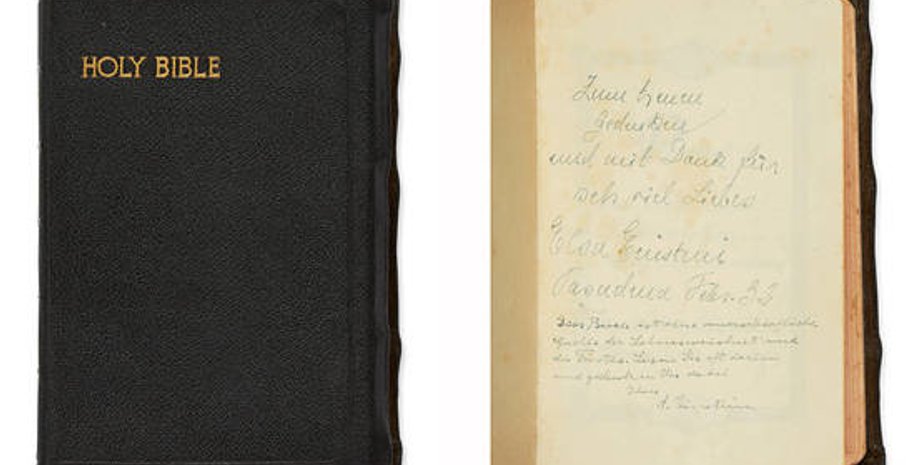 HOLY BIBLE
Zum treuen
Gedenken
und mit Dank für
seh viel Liebes
Elsa Einstein
Pasadena Febr. 32
Dies Buch ist eine unerschöpfliche
Quelle der Lebensweisheit und
des Trostes. Lesen Sie oft darin
und gedenken Sie dabei
Ihres
A. Einstein